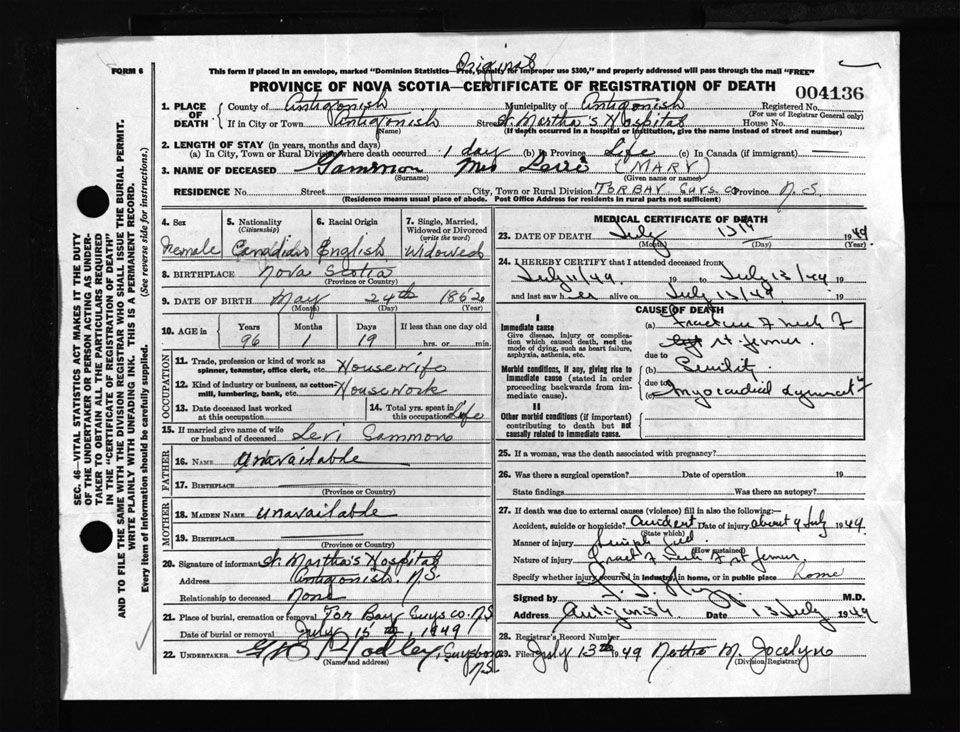 FORM 6
Original
This form if placed in an envelope, marked "Dominion Statistics—Free, penalty for improper use $300," and properly addressed will pass through the mail "FREE"
PROVINCE OF NOVA SCOTIA—CERTIFICATE OF REGISTRATION OF DEATH
004136
1. PLACE OF DEATH { County of Antigonish Municipality of Antigonish Registered No.
(For use of Registrar General only)
If in City or Town Antigonish Street St. Martha's Hospital House No.
(Name) (If death occurred in a hospital or institution, give the name instead of street and number)
2. LENGTH OF STAY (in years, months and days)
(a) In City, Town or Rural Division where death occurred 1 day (b) in Province Life (c) In Canada (if immigrant) —
3. NAME OF DECEASED Sammon Mrs Levi (MARY)
(Surname) (Given name or names)
RESIDENCE No. Street City, Town or Rural Division TORBAY GUYS. CO Province N.S
(Residence means usual place of abode. Post Office Address for residents in rural parts not sufficient)
4. Sex
Female
5. Nationality
(Citizenship)
Canadian
6. Racial Origin
English
7. Single, Married, Widowed or Divorced
(write the word)
Widowed
8. BIRTHPLACE Nova Scotia
(Province or Country)
9. DATE OF BIRTH May 24th 1852
(Month) (Day) (Year)
10. AGE in Years Months Days If less than one day old
96 1 19 hrs. or min.
OCCUPATION
11. Trade, profession or kind of work as spinner, teamster, office clerk, etc. Housewife
12. Kind of industry or business, as cotton-mill, lumbering, bank, etc. Housework
13. Date deceased last worked at this occupation
14. Total yrs. spent in this occupation Life
15. If married give name of wife or husband of deceased Levi Sammon
FATHER
16. NAME Unavailable
17. BIRTHPLACE
(Province or Country)
MOTHER
18. MAIDEN NAME Unavailable
19. BIRTHPLACE
(Province or Country)
20. Signature of informant St. Martha's Hospital
Address Antigonish N.S.
Relationship to deceased None
21. Place of burial, cremation or removal Tor Bay Guys co. N.S
Date of burial or removal July 15th, 1949
22. UNDERTAKER Guysboro N.S.
(Name and address)
MEDICAL CERTIFICATE OF DEATH
23. DATE OF DEATH July 13th 1949
(Month) (Day) (Year)
24. I HEREBY CERTIFY that I attended deceased from
July 11/49 19 to July 13/49 19
and last saw her alive on July 13/49 19
CAUSE OF DEATH
I
Immediate cause
Give disease, injury or complication which caused death, not the mode of dying, such as heart failure, asphyxia, asthenia, etc.
(a) Fracture of neck of rt. femur
due to
Morbid conditions, if any, giving rise to immediate cause (stated in order proceeding backwards from immediate cause).
(b) Senility
due to
(c) Myocardial
II
Other morbid conditions (if important) contributing to death but not causally related to immediate cause.
25. If a woman, was the death associated with pregnancy?
26. Was there a surgical operation? Date of operation 19
State findings Was there an autopsy?
27. If death was due to external causes (violence) fill in also the following:—
Accident, suicide or homicide? Accident Date of injury about 9 July 1949
(State which)
Manner of injury
(How sustained)
Nature of injury Fract of neck of rt femur
Specify whether injury occurred in industry, in home, or in public place home
Signed by M.D.
Address Antigonish Date 13 July 1949
28. Registrar's Record Number
29. Filed July 13th 1949 M. Jocelyn
(Division Registrar)
SEC. 46—VITAL STATISTICS ACT MAKES IT THE DUTY
OF THE UNDERTAKER OR PERSON ACTING AS UNDER-
TAKER TO OBTAIN ALL THE PARTICULARS REQUIRED
IN THE "CERTIFICATE OF REGISTRATION OF DEATH"
AND TO FILE THE SAME WITH THE DIVISION REGISTRAR WHO SHALL ISSUE THE BURIAL PERMIT.
WRITE PLAINLY WITH UNFADING INK. THIS IS A PERMANENT RECORD.
Every item of Information should be carefully supplied. (See reverse side for instructions.)